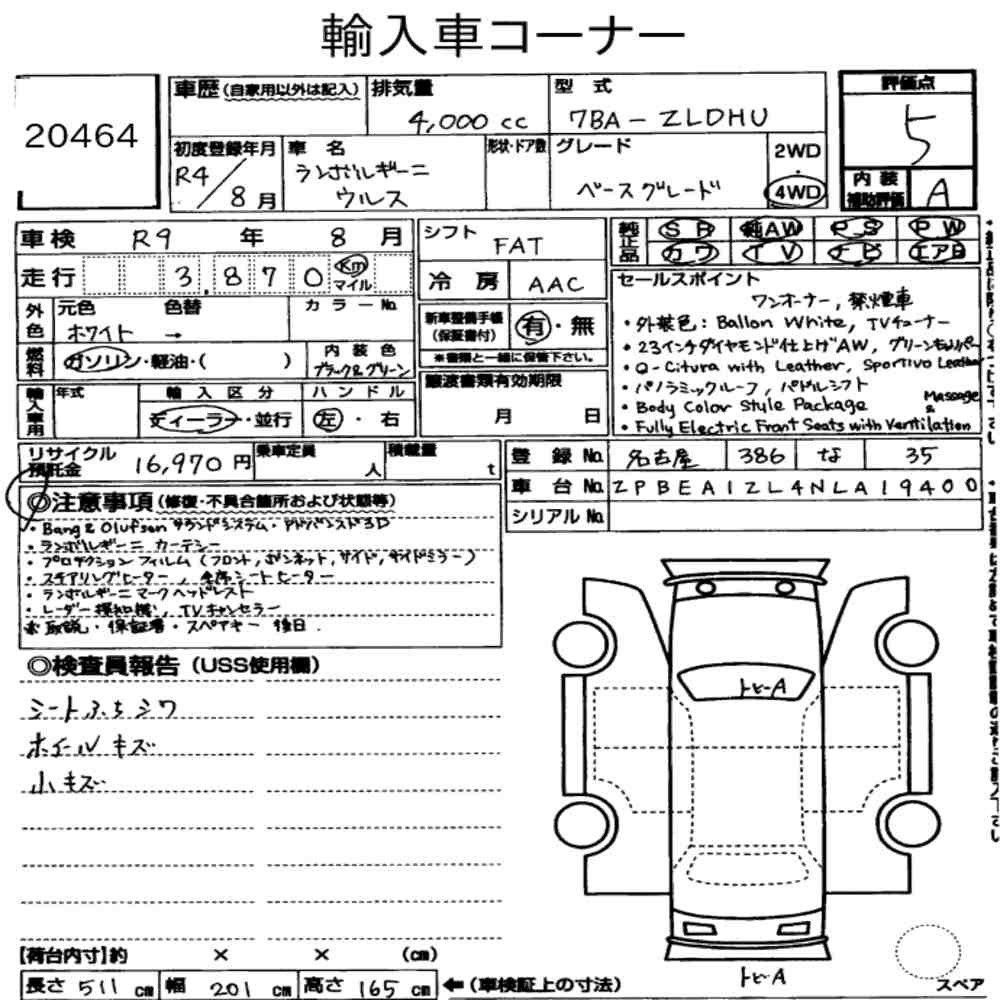 輸入車コーナー
20464
車歴 (自家用以外は記入)
排気量
4,000 cc
型式
7BA - ZLDHU
評価点
5
内装
補助評価
A
初度登録年月
R4/8月
車名
ランボルギーニ
ウルス
形状・ドア数
グレード
ベースグレード
2WD
4WD
車検 R9 年 8 月
走行 3,870 Km
マイル
シフト
FAT
冷房 AAC
純正品
SR 純AW PS PW
カワ TV ナビ エアB
セールスポイント
ワンオーナー, 禁煙車
・外装色: Ballon White, TVチューナー
・23インチダイヤモンド仕上げAW, グリーンキャリパー
・Q-Citura with Leather, Sportivo Leather
・パノラミックルーフ, パドルシフト
・Body Color Style Package
Massage
&
・Fully Electric Front Seats with Ventilation
外色
元色 色替 カラーNo.
ホワイト →
燃料
ガソリン・軽油・( )
内装色
ブラック&グリーン
新車整備手帳
(保証書付)
有・無
※書類と一緒に保管下さい。
輸入車用
年式
輸入区分
ディーラー・並行
ハンドル
左・右
譲渡書類有効期限
月 日
リサイクル
預託金 16,970円
乗車定員
人
積載量
t
登録No. 名古屋 386 な 35
車台No. ZPBEA1ZL4NLA19400
シリアルNo.
◎注意事項 (修復・不具合箇所および状態等)
・Bang & Olufsen サウンドシステム・アドバンスド3D
・ランボルギーニ カーテシー
・プロテクションフィルム (フロント, ボンネット, サイド, サイドミラー)
・ステアリングヒーター, 全席シートヒーター
・ランボルギーニマークヘッドレスト
・レーダー探知機, TVキャンセラー
※取説・保証書・スペアキー 後日.
◎検査員報告 (USS使用欄)
シートふちシワ
ホイールキズ
小キズ
トビーA
トビーA
スペア
【荷台内寸】約 × × (cm)
長さ 511 cm 幅 201 cm 高さ 165 cm ←(車検証上の寸法)